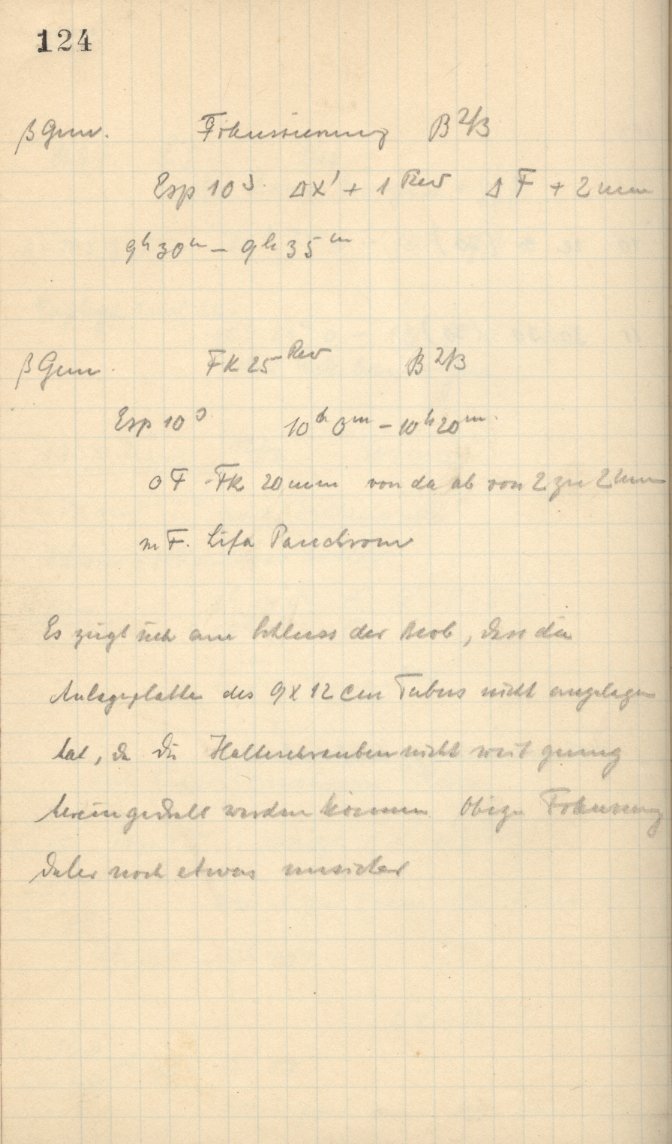 124
β Gem. Fokussierung B 2/3
Exp 10s Δx' + 1 Rev Δ F + 2 mm
9h 30m – 9h 35m
β Gem FK 25 Rev B 2/3
Exp 10s 10h 0m – 10h 20m
FK 20 mm von da ab von 2 zu 2 mm
m F. Lifa Panchrom
Es zeigt sich am Schluss der Beob, dass die
Anlageplatte des 9 x 12 cm Tubus nicht angelegen
hat, da die Halteschrauben nicht weit genug
hereingedreht werden können Obige Fokussierung
daher noch etwas unsicher